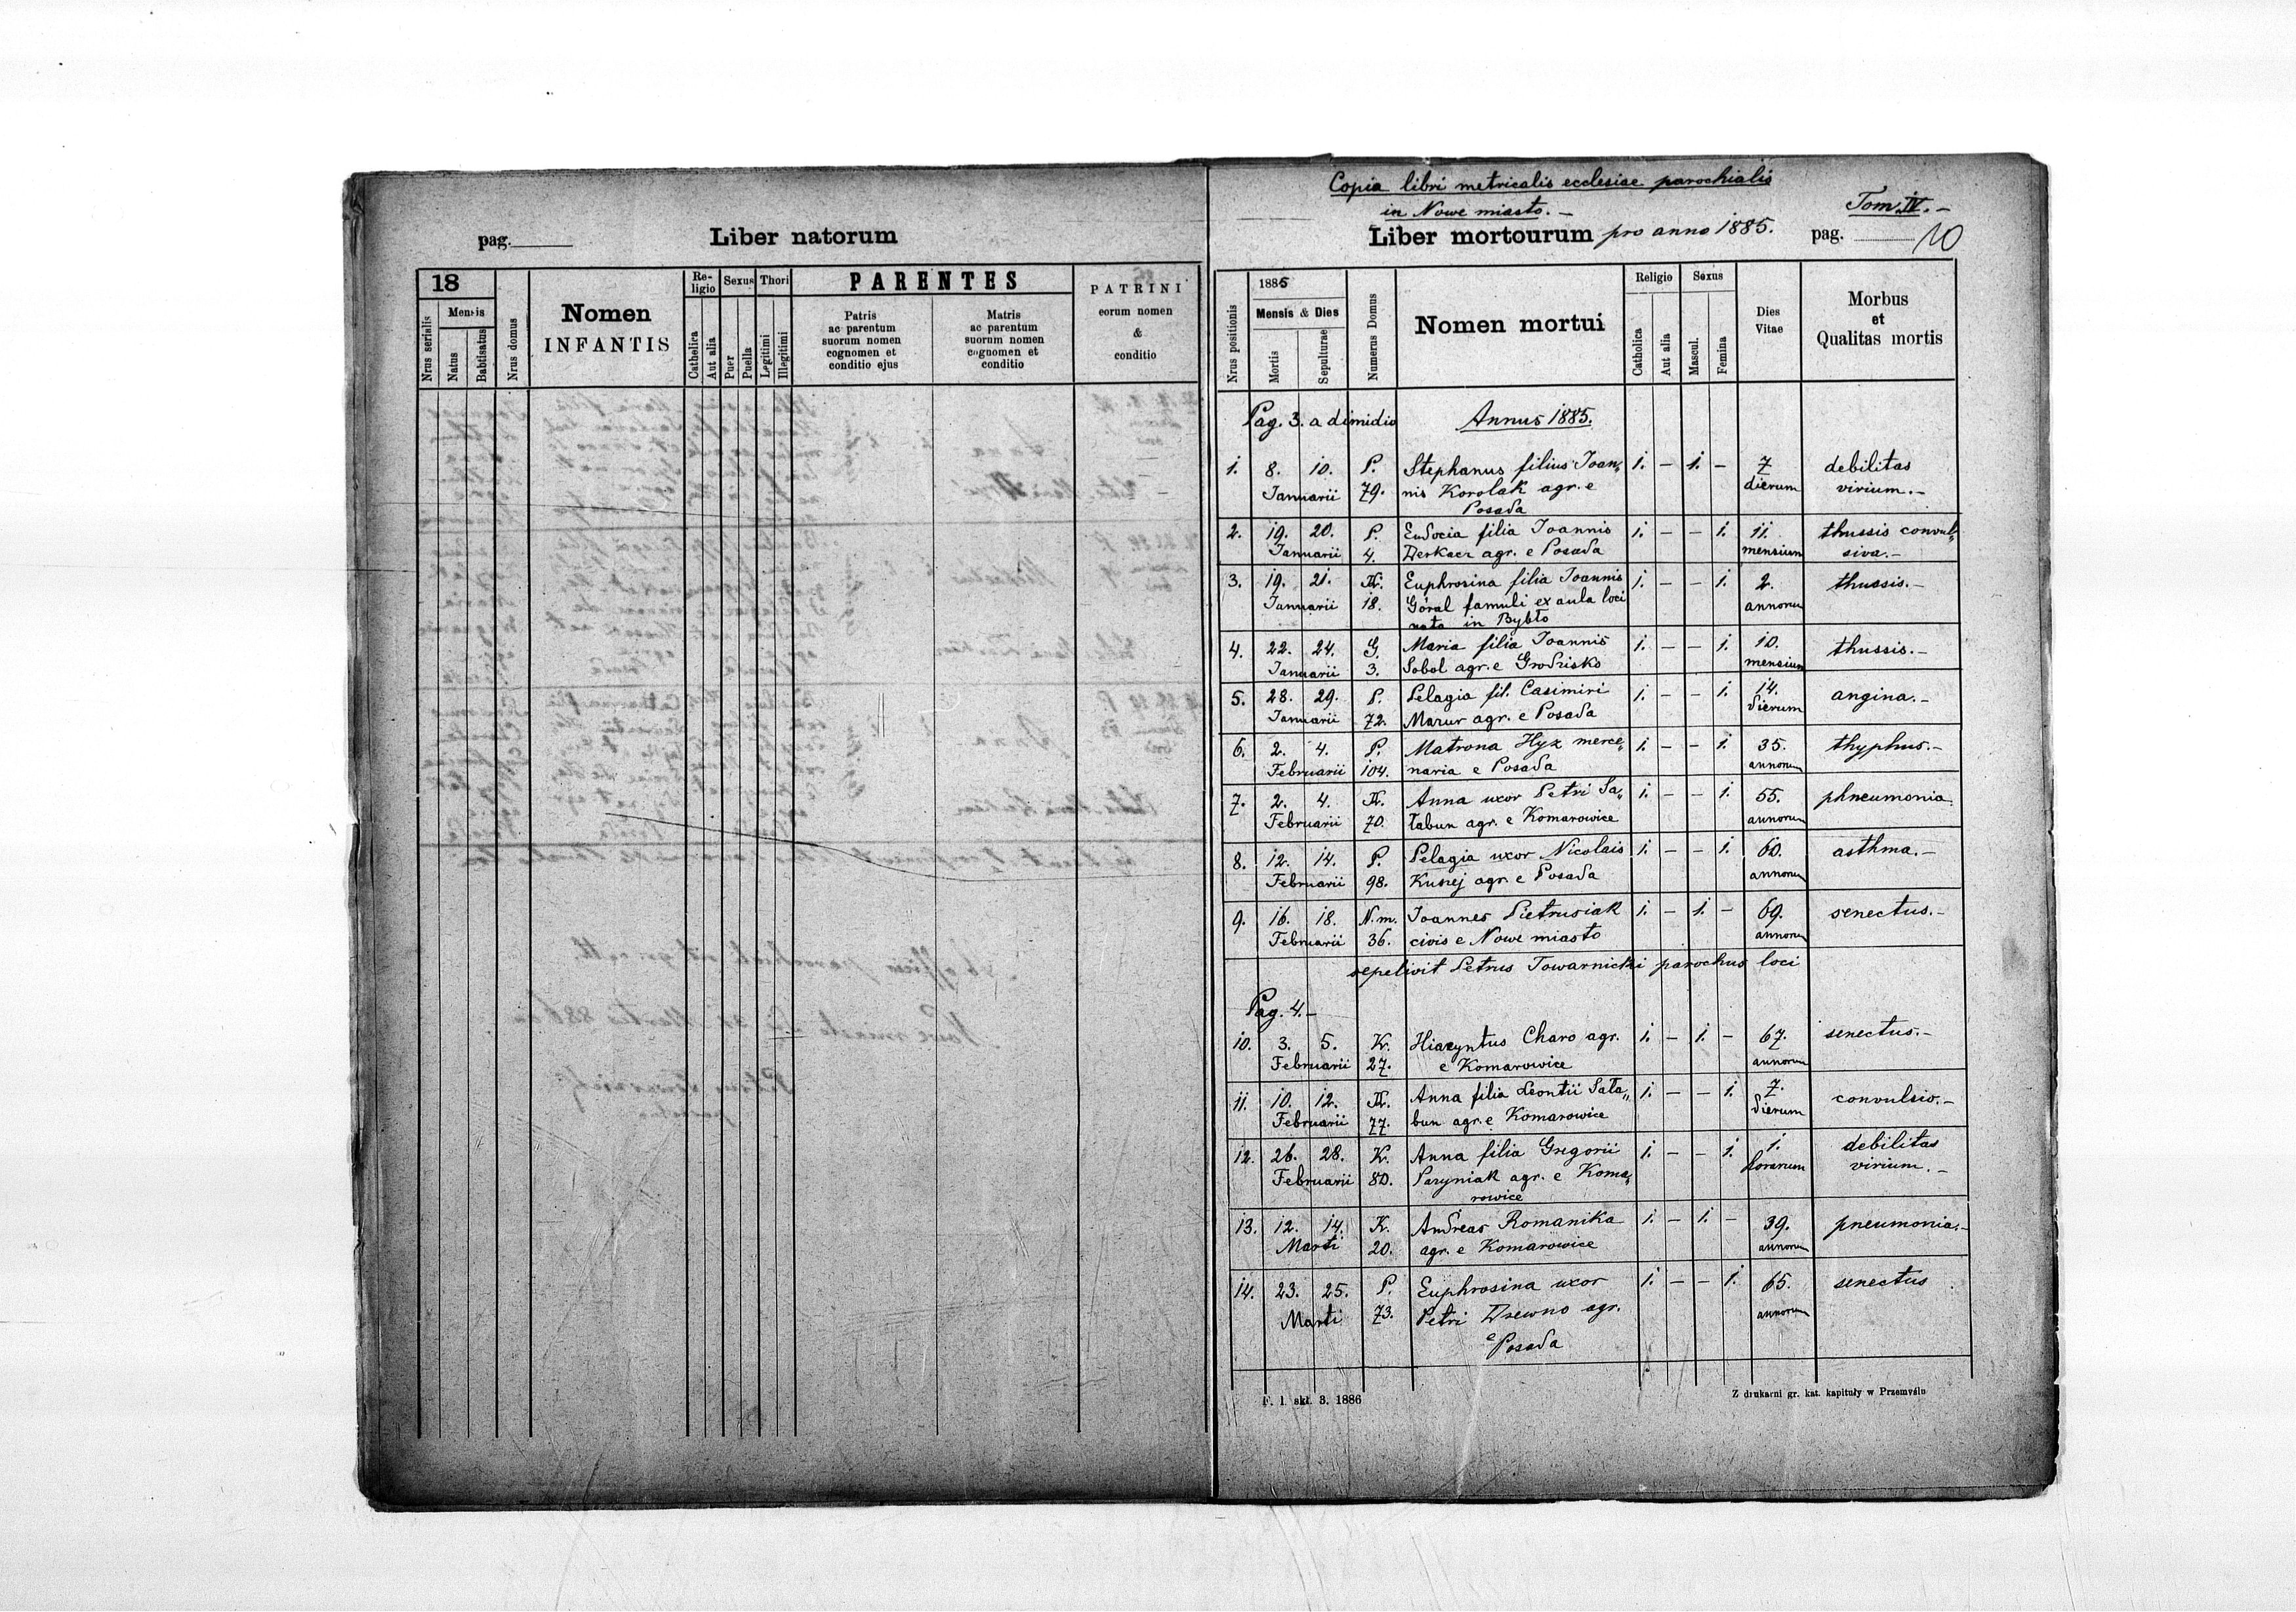 pag. Liber natorum
18
Mensis
Nrus serialis
Natus
Babtisatus
Nrus domus
Nomen
INFANTIS
Re-
ligio
Catholica
Aut alia
Sexus
Puer
Puella
Thori
Legitimi
Illegitimi
PARENTES
Patris
ac parentum
suorum nomen
cognomen et
conditio ejus
Matris
ac parentum
suorum nomen
cognomen et
conditio
PATRINI
eorum nomen
&
conditio
Copia libri metricalis ecclesiae parochialis
in Nowe miasto. –
Tom. IV. –
Liber mortourum pro anno 1885. pag. 10
Nrus positionis
1885
Mensis & Dies
Mortis
Sepulturae
Numerus Domus
Nomen mortui
Religio
Catholica
Aut alia
Sexus
Mascul.
Femina
Dies
Vitae
Morbus
et
Qualitas mortis
Pag. 3. a dimidio Annus 1885.
1. 8. 10. P. Stephanus filius Joan„ 1. – 1. – 7 debilitas
Januarii 79. nis Korolak agr. e dierum virium. –
Posada
2. 19. 20. P. Eudocia filia Joannis 1. – – 1. 11. thussis convul„
Januarii 4. Derkacz agr. e Posada mensium siva. –
3. 19. 21. K. Euphrosina filia Joannis 1. – – 1. 2. thussis. –
Januarii 18. Góral famuli ex aula loci annorum
nata in Bybło
4. 22. 24. G. Maria filia Joannis 1. – – 1. 10. thussis. –
Januarii 3. Sobol agr. e Grodzisko mensium
5. 28. 29. P. Pelagia fil. Casimiri 1. – – 1. 14. angina. –
Januarii 72. Mazur agr. e Posada dierum
6. 2. 4. P. Matrona Hyz merce„ 1. – – 1. 35. thyphus. –
Februarii 104. naria e Posada annorum
7. 2. 4. K. Anna uxor Petri Sa„ 1. – – 1. 55. phneumonia.
Februarii 70. łabun agr. e Komarowice annorum
8. 12. 14. P. Pelagia uxor Nicolais 1. – – 1. 60. asthma. –
Februarii 98. Kusnej agr. e Posada annorum
9. 16. 18. N. m. Joannes Pietrusiak 1. – 1. – 69. senectus. –
Februarii 36. civis e Nowe miasto annorum
sepelivit Petrus Towarnicki parochus loci
Pag. 4. –
10. 3. 5. K. Hiacyntus Charo agr. 1. – 1. – 67. senectus. –
Februarii 27. e Komarowice annorum
11. 10. 12. K. Anna filia Leontii Sała„ 1. – – 1. 7. convulsio. –
Februarii 77. bun agr. e Komarowice dierum
12. 26. 28. K. Anna filia Gregorii 1. – – 1. 1. debilitas
Februarii 80. Paryniak agr. e Koma„ horarum virium. –
rowice
13. 12. 14. K. Andreas Romanika 1. – 1. – 39. pneumonia. –
Marti 20. agr. e Komarowice annorum
14. 23. 25. P. Euphrosina uxor 1. – – 1. 65. senectus
Marti 73. Petri Drewno agr. annorum
e Posada
F. 1. skł. 3. 1886
Z drukarni gr. kat. kapituły w Przemyślu